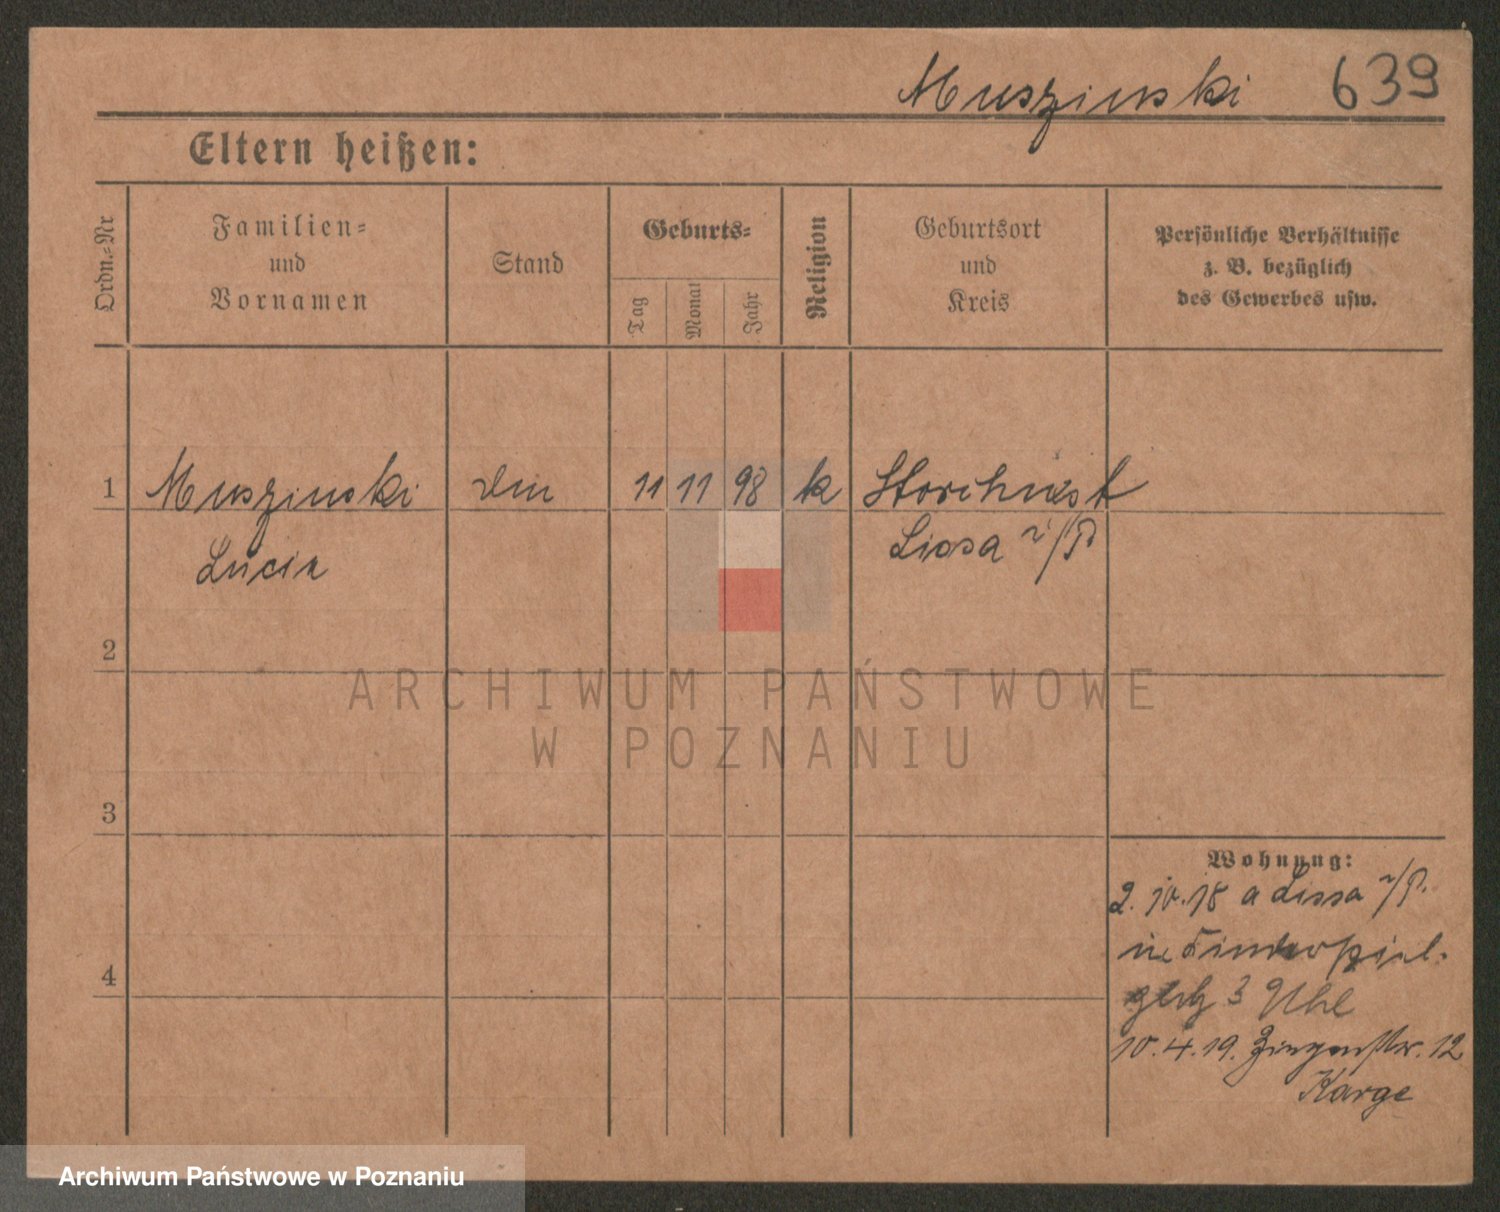 Muszinski 639
Eltern heißen:
Ordn.-Nr
Familien-
und
Vornamen
Stand
Geburts-
Tag
Monat
Jahr
Religion
Geburtsort
und
Kreis
Persönliche Verhältnisse
z. B. bezüglich
des Gewerbes usw.
1 Muszinski 11 11 98 k Storchnest
Lucia Lissa i/P
2
ARCHIWUM PAŃSTWOWE
W POZNANIU
3
Wohnung:
2. 10. 18 a Lissa i/P.
4
3 Uhl
10. 4. 19. 12
Karge
Archiwum Państwowe w Poznaniu